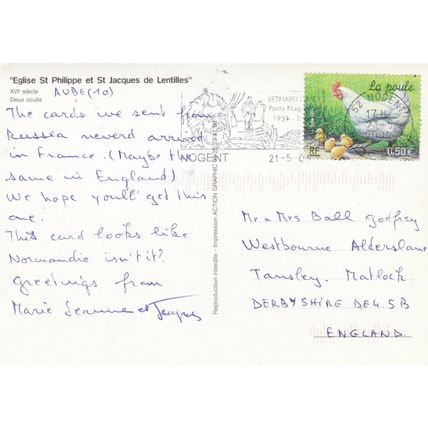 "Eglise St Philippe et St Jacques de Lentilles"
XVIᵉ siècle
Deux oculis
AUBE (10)
The cards we sent from
Russia neverd arrived
in France. (Maybe the
same in England)
We hope youll'get this
one.
This card looks like
Normandie isn't it?.
Greetings from
Marie Jeanne et Jacques
Reproduction interdite - Impression ACTION GRAPHIC
NOGENT
21-5-0
52 NOGENT
17 H
la poule
RF
0,50€
Mr & Mrs Ball Godfrey
Westbourne Alderslane
Tansley. Matlock.
DERBYSHIRE DE4.5B
ENGLAND.